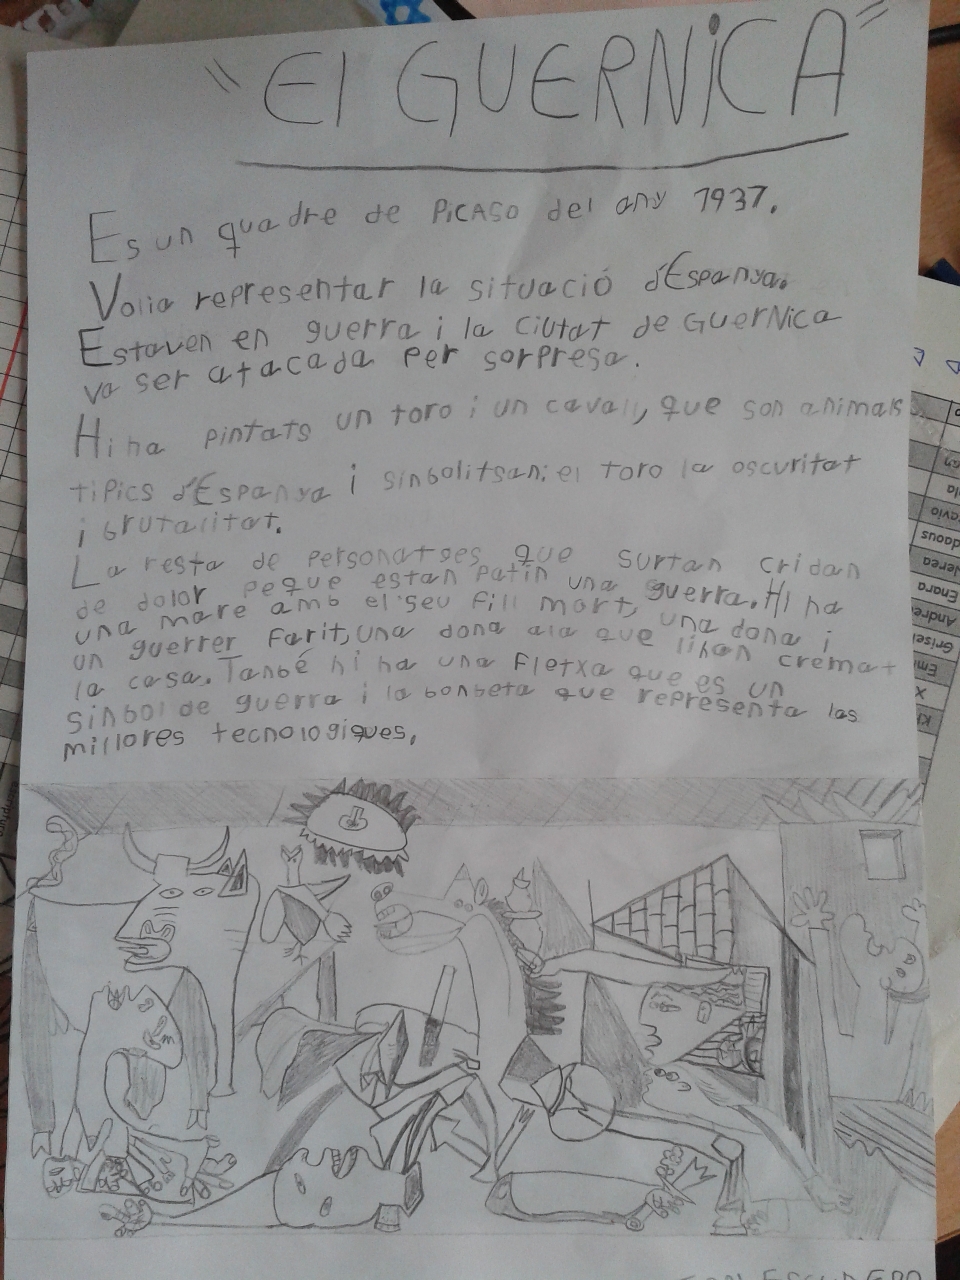 "El GUERNiCA"
Es un quadre de PiCASO del any 1937.
Volia representar la situació d'Espanya.
Estaven en guerra i la Ciutat de GuerNica
va ser atacada per sorpresa.
Hi ha pintats un toro i un cavall, que son animals
tipics d'Espanya i sinbolitsan: el toro la oscuritat
i brutalitat.
La resta de personatses que surtan cridan
de dolor peque estan patin una guerra. Hi ha
una mare amb el seu fill mort, una dona i
un guerrer farit, una dona ala que lihan cremat
la casa. Tanbé hi ha una fletxa que es un
sinbol de guerra i la bonbeta que representa las
millores tecnologiques.